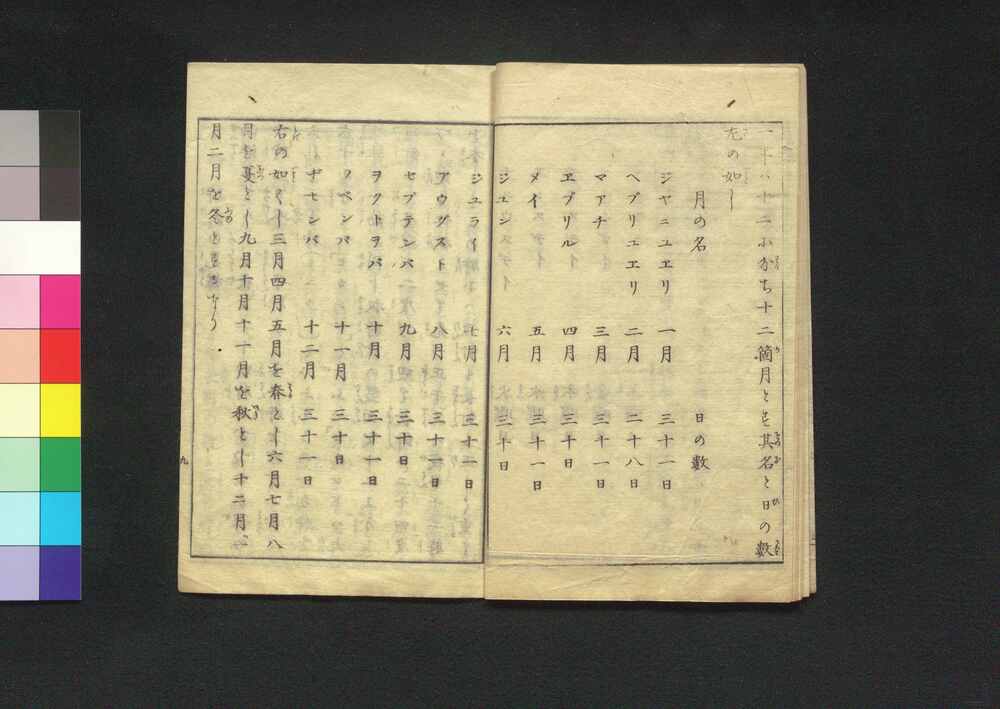 一年ハ十二に分ち十二箇月とす其名と日の数
左の如し
月の名 日の數
ジヤニユエリ 一月 三十一日
ヘブリユエリ 二月 二十八日
マアチ 三月 三十一日
エプリル 四月 三十日
メイ 五月 三十一日
ジユン 六月 三十日
ジユライ 七月 三十一日
アウグスト 八月 三十一日
セプテンバ 九月 三十日
ヲクトヲバ 十月 三十一日
ノベンバ 十一月 三十日
ヂセンバ 十二月 三十一日
右の如くし三月四月五月を春とし六月七月八
月を夏とし九月十月十一月を秋とし十二月一
月二月を冬と
九